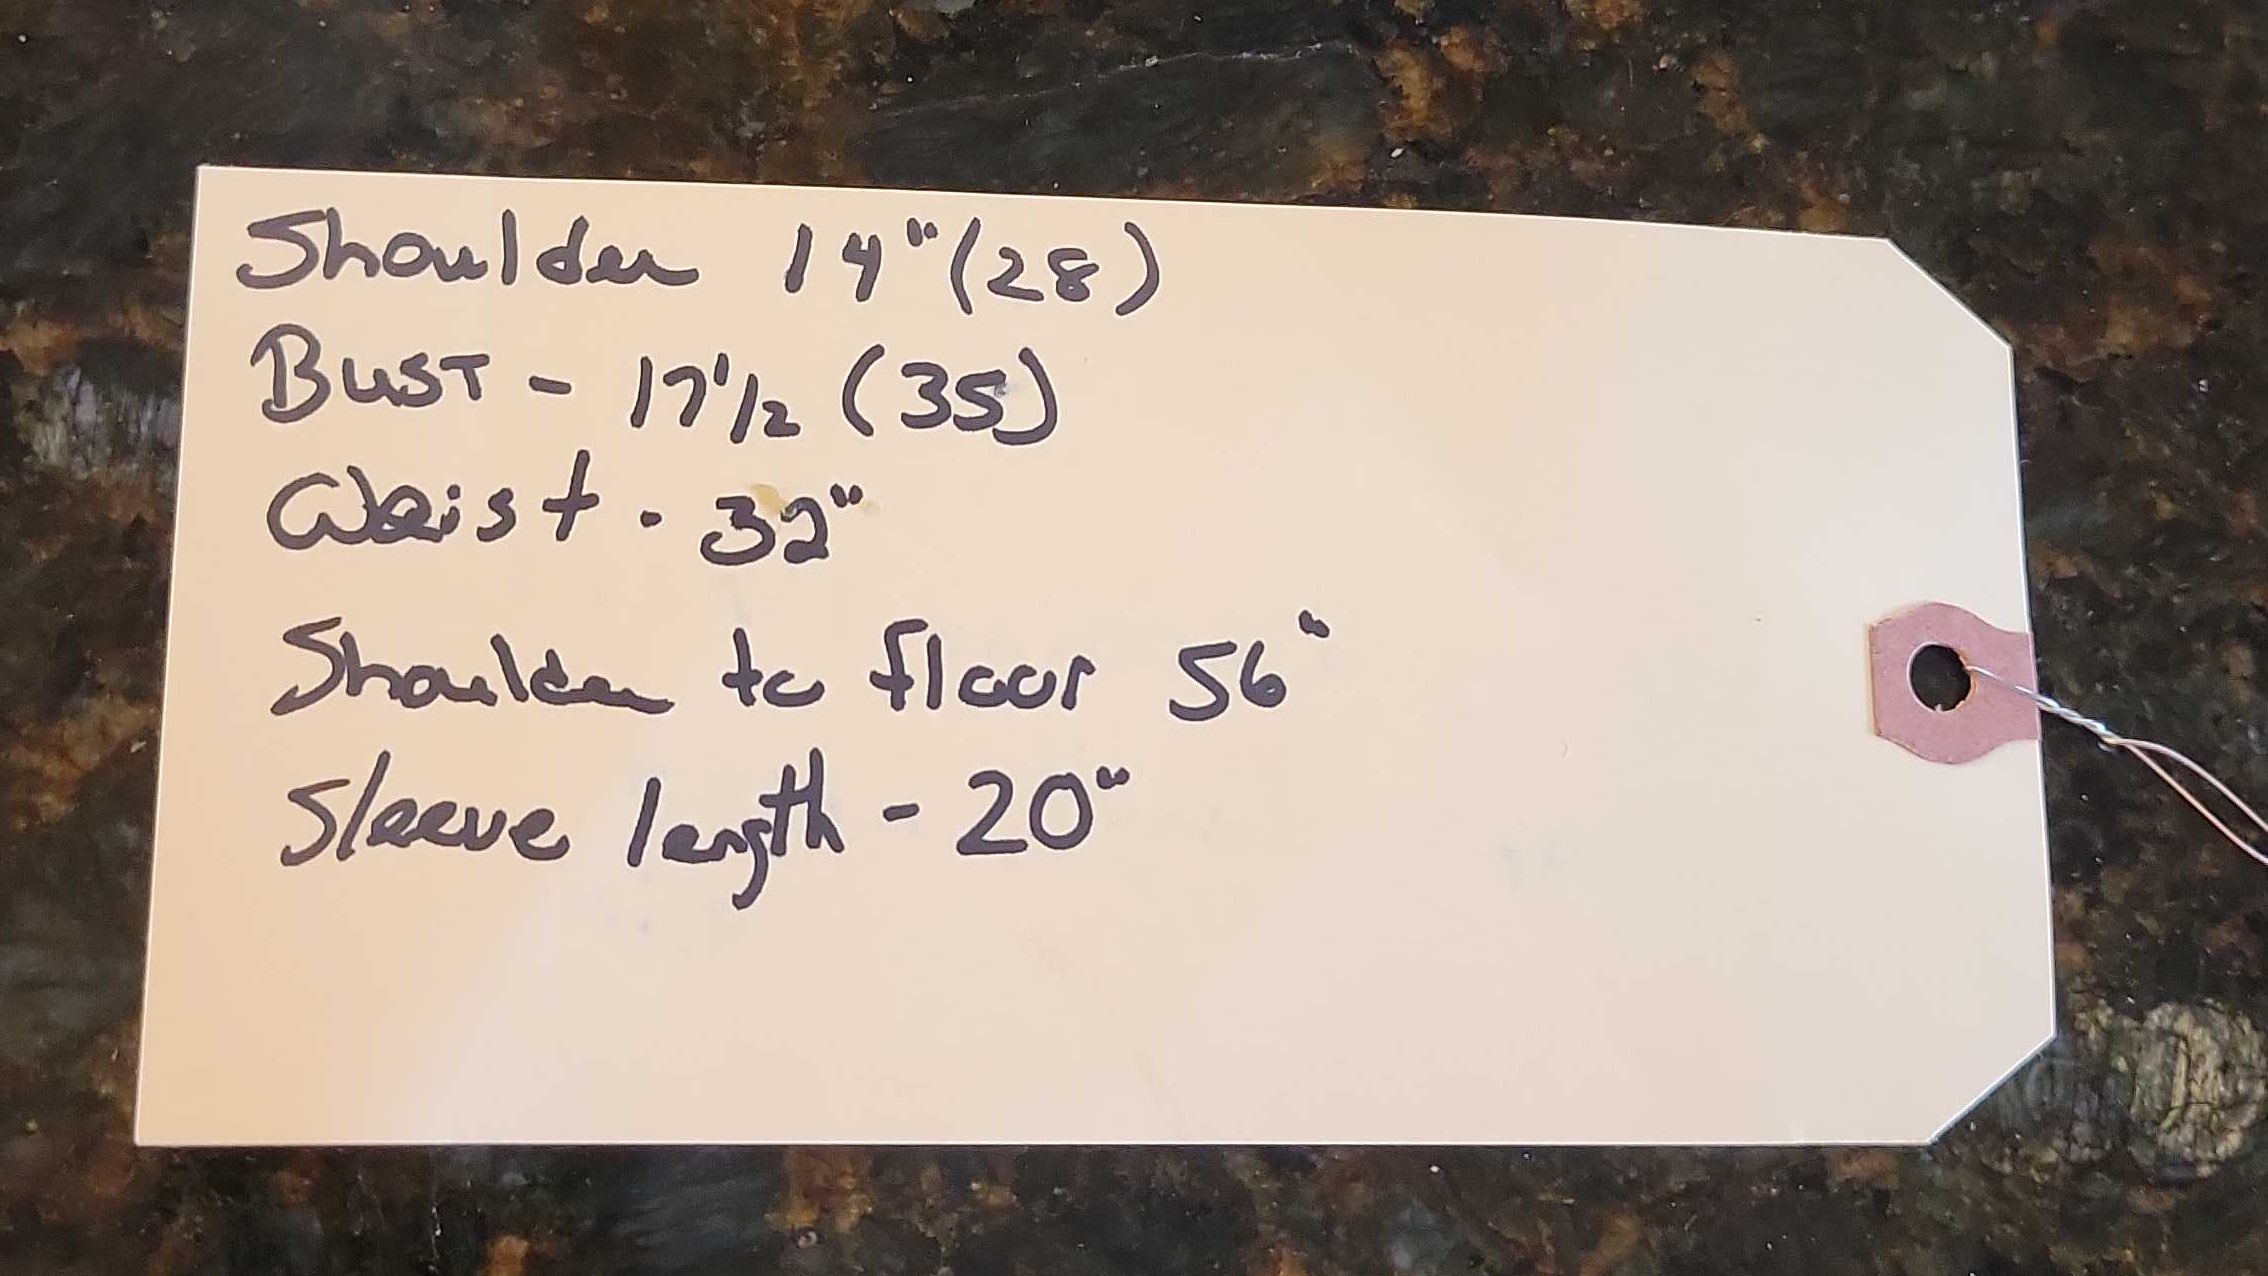 Shoulder 14" (28)
BUST - 17 1/2 (35)
Waist - 32"
Shoulder to floor 56"
Sleeve length - 20"